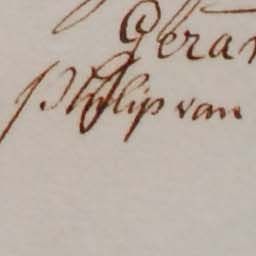 Gerar
Philip van